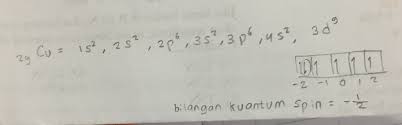 29 Cu = 1s², 2s², 2p⁶, 3s², 3p⁶, 4s², 3d⁹
1↓ 1 1 1 1
-2 -1 0 1 2
bilangan kuantum spin = -1/2